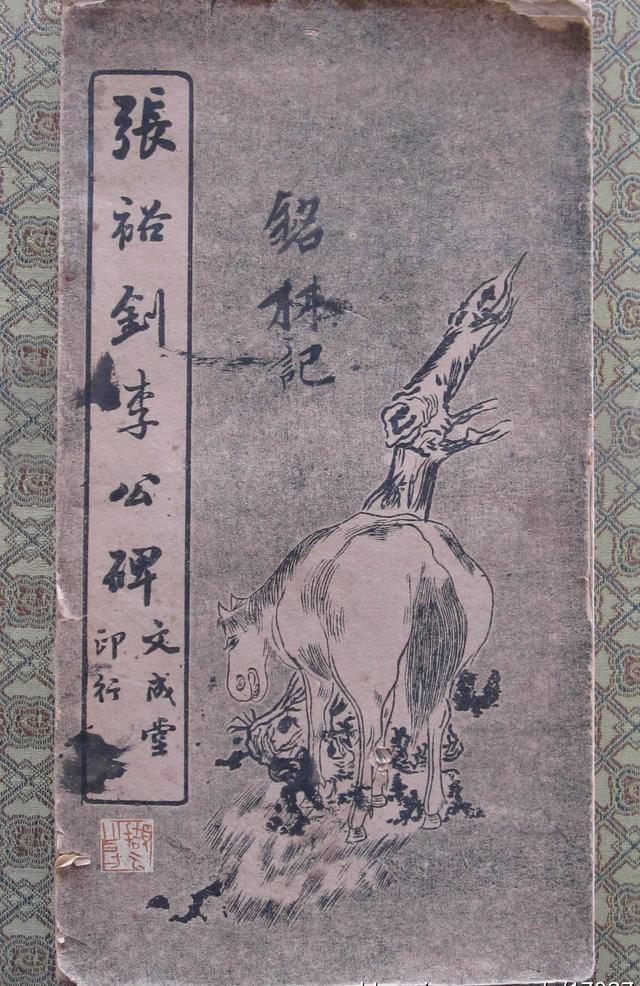 張裕釗李公碑
文成堂
印行
銘林記